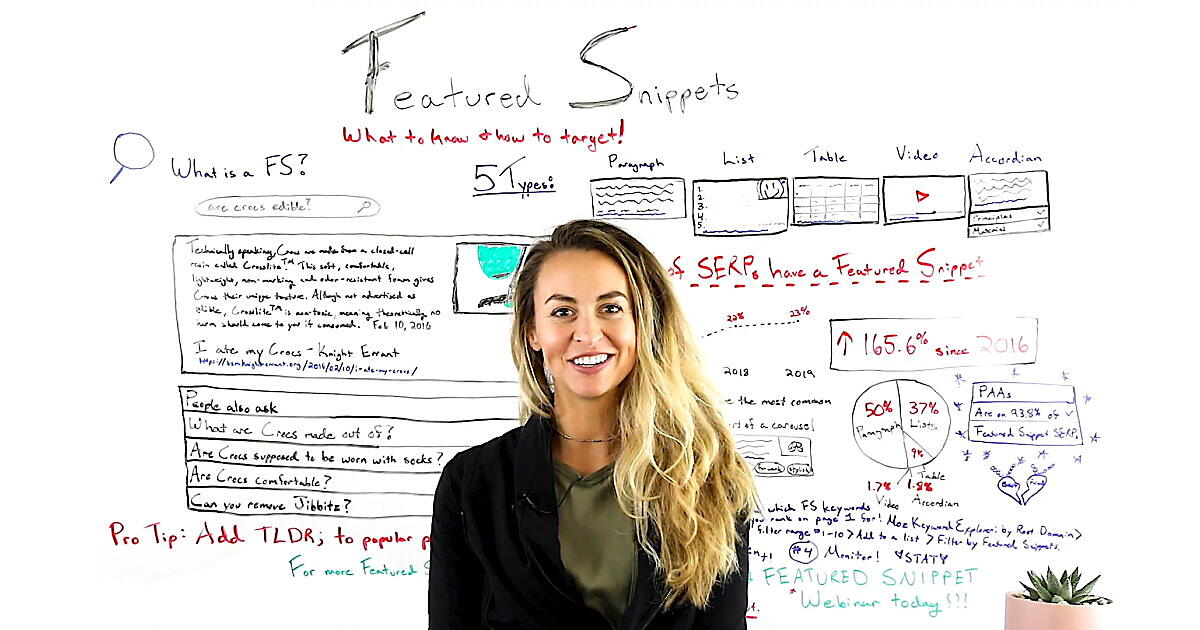 Featured Snippets
What to know & how to target!
What is a FS?
are crocs edible?
Technically speaking, Crocs are made from a closed-cell
resin called Croslite.™ This soft, comfortable,
lightweight, non-marking and odor-resistant foam gives
Crocs their unique texture. Although not advertised as
edible, Croslite™ is non-toxic, meaning theoretically no
harm should come to you if consumed. Feb 10, 2016
I ate my Crocs - Knight Errant
People also ask
What are Crocs made out of?
Are Crocs supposed to be worn with socks?
Are Crocs comfortable?
Can you remove Jibbitz?
Pro Tip: Add TLDR; to popular
For more Featured
5 Types:
Paragraph
List
Table
Video
Accordian
1.
2.
3.
4.
5.
Principles
Material
of SERPs have a Featured Snippet
22%
23%
2018
2019
↑ 165.6% since 2016
the most common
of a carousel
50% Paragraph
37% Lists
9%
Table
1.7% Video
1.8% Accordian
PAAs
Are on 93.8% of
Featured Snippet SERPs
Best
Friend
which FS keywords
you rank on page 1 for! Moz Keyword Explorer: by Root Domain >
filter range #1-10 > Add to a list > Filter by Featured Snippets.
#4 Monitor! STAT
FEATURED SNIPPET
*Webinar today!!!